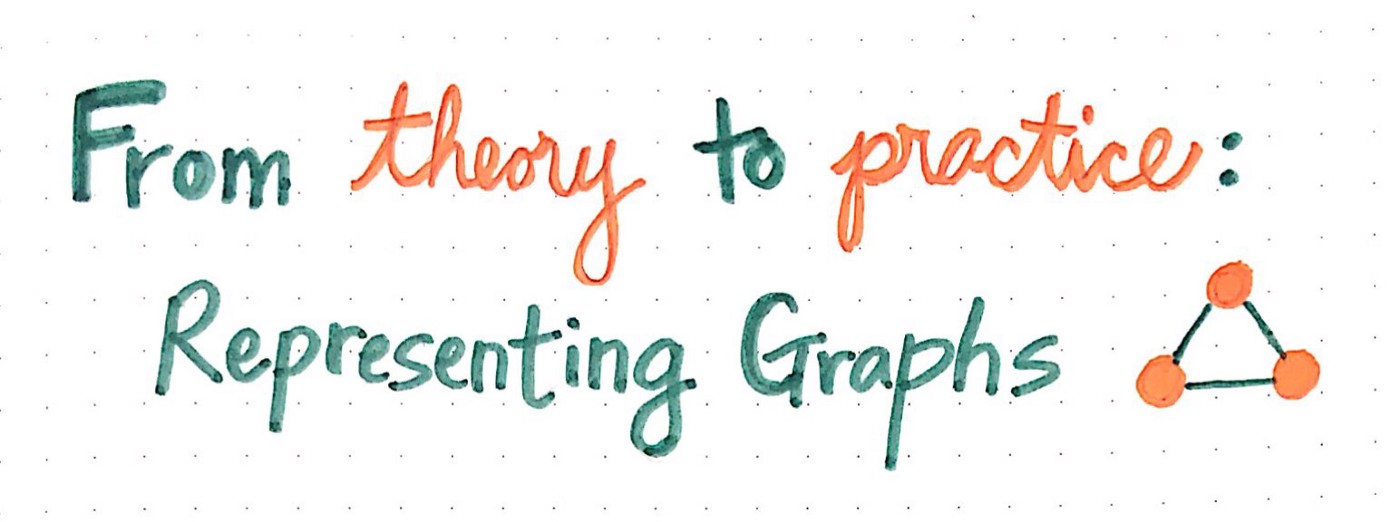 From theory to practice:
Representing Graphs